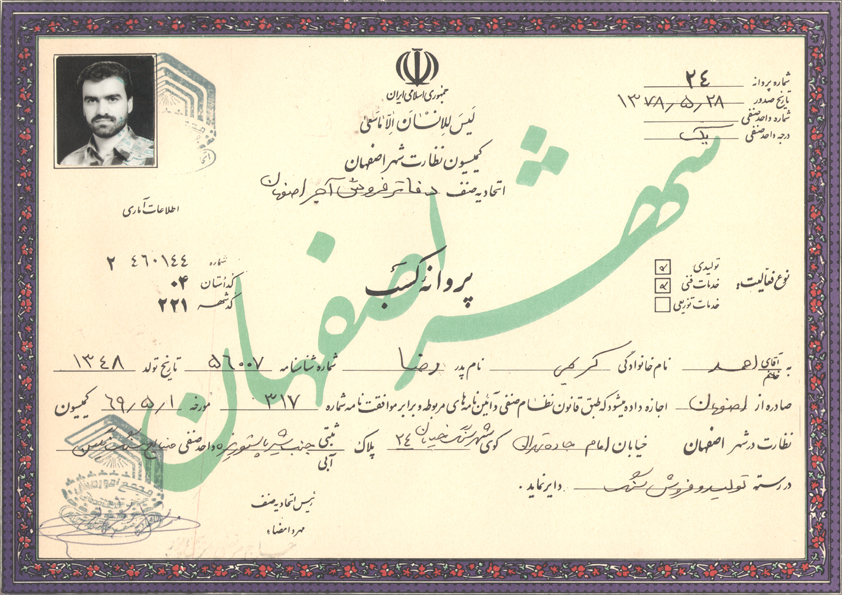 جمهوری اسلامی ایران
لَیسَ لِلاِنْسٰانِ اِلّا مٰاسَعیٰ
کمیسیون نظارت شهر اصفهان
اتحادیه صنف دفاتر فروش آجر اصفهان
شماره پروانه ۲۴
تاریخ صدور ۱۳۷۸٫۵٫۲۸
شماره واحد صنفی
درجه واحد صنفی یک
شهر اصفهان
اطلاعات آماری
شماره ۴۶۰۱۴۴ ۲
کد استان ۰۴
کد شهر ۲۲۱
پروانه کسب
نوع فعالیت:
تولیدی
خدمات فنی
خدمات توزیعی
به آقای خانم احمد نام خانوادگی کریمی نام پدر رضا شماره شناسنامه ۵۶۰۰۷ تاریخ تولد ۱۳۴۸
صادره از اصفهان اجازه داده میشود که طبق قانون نظام صنفی و آئین نامه های مربوطه و برابر موافقت نامه شماره ۳۱۷ مورخه ۶۹٫۵٫۱ کمیسیون
نظارت در شهر اصفهان خیابان امام جاده تهران کوی شهرک سنگ خیابان ۲۴ پلاک ثبتی آبی جنب واحد صنفی صنایع سنگ
در رسته تولید و فروش سنگ دایر نماید.
رئیس اتحادیه صنف
مهر و امضاء